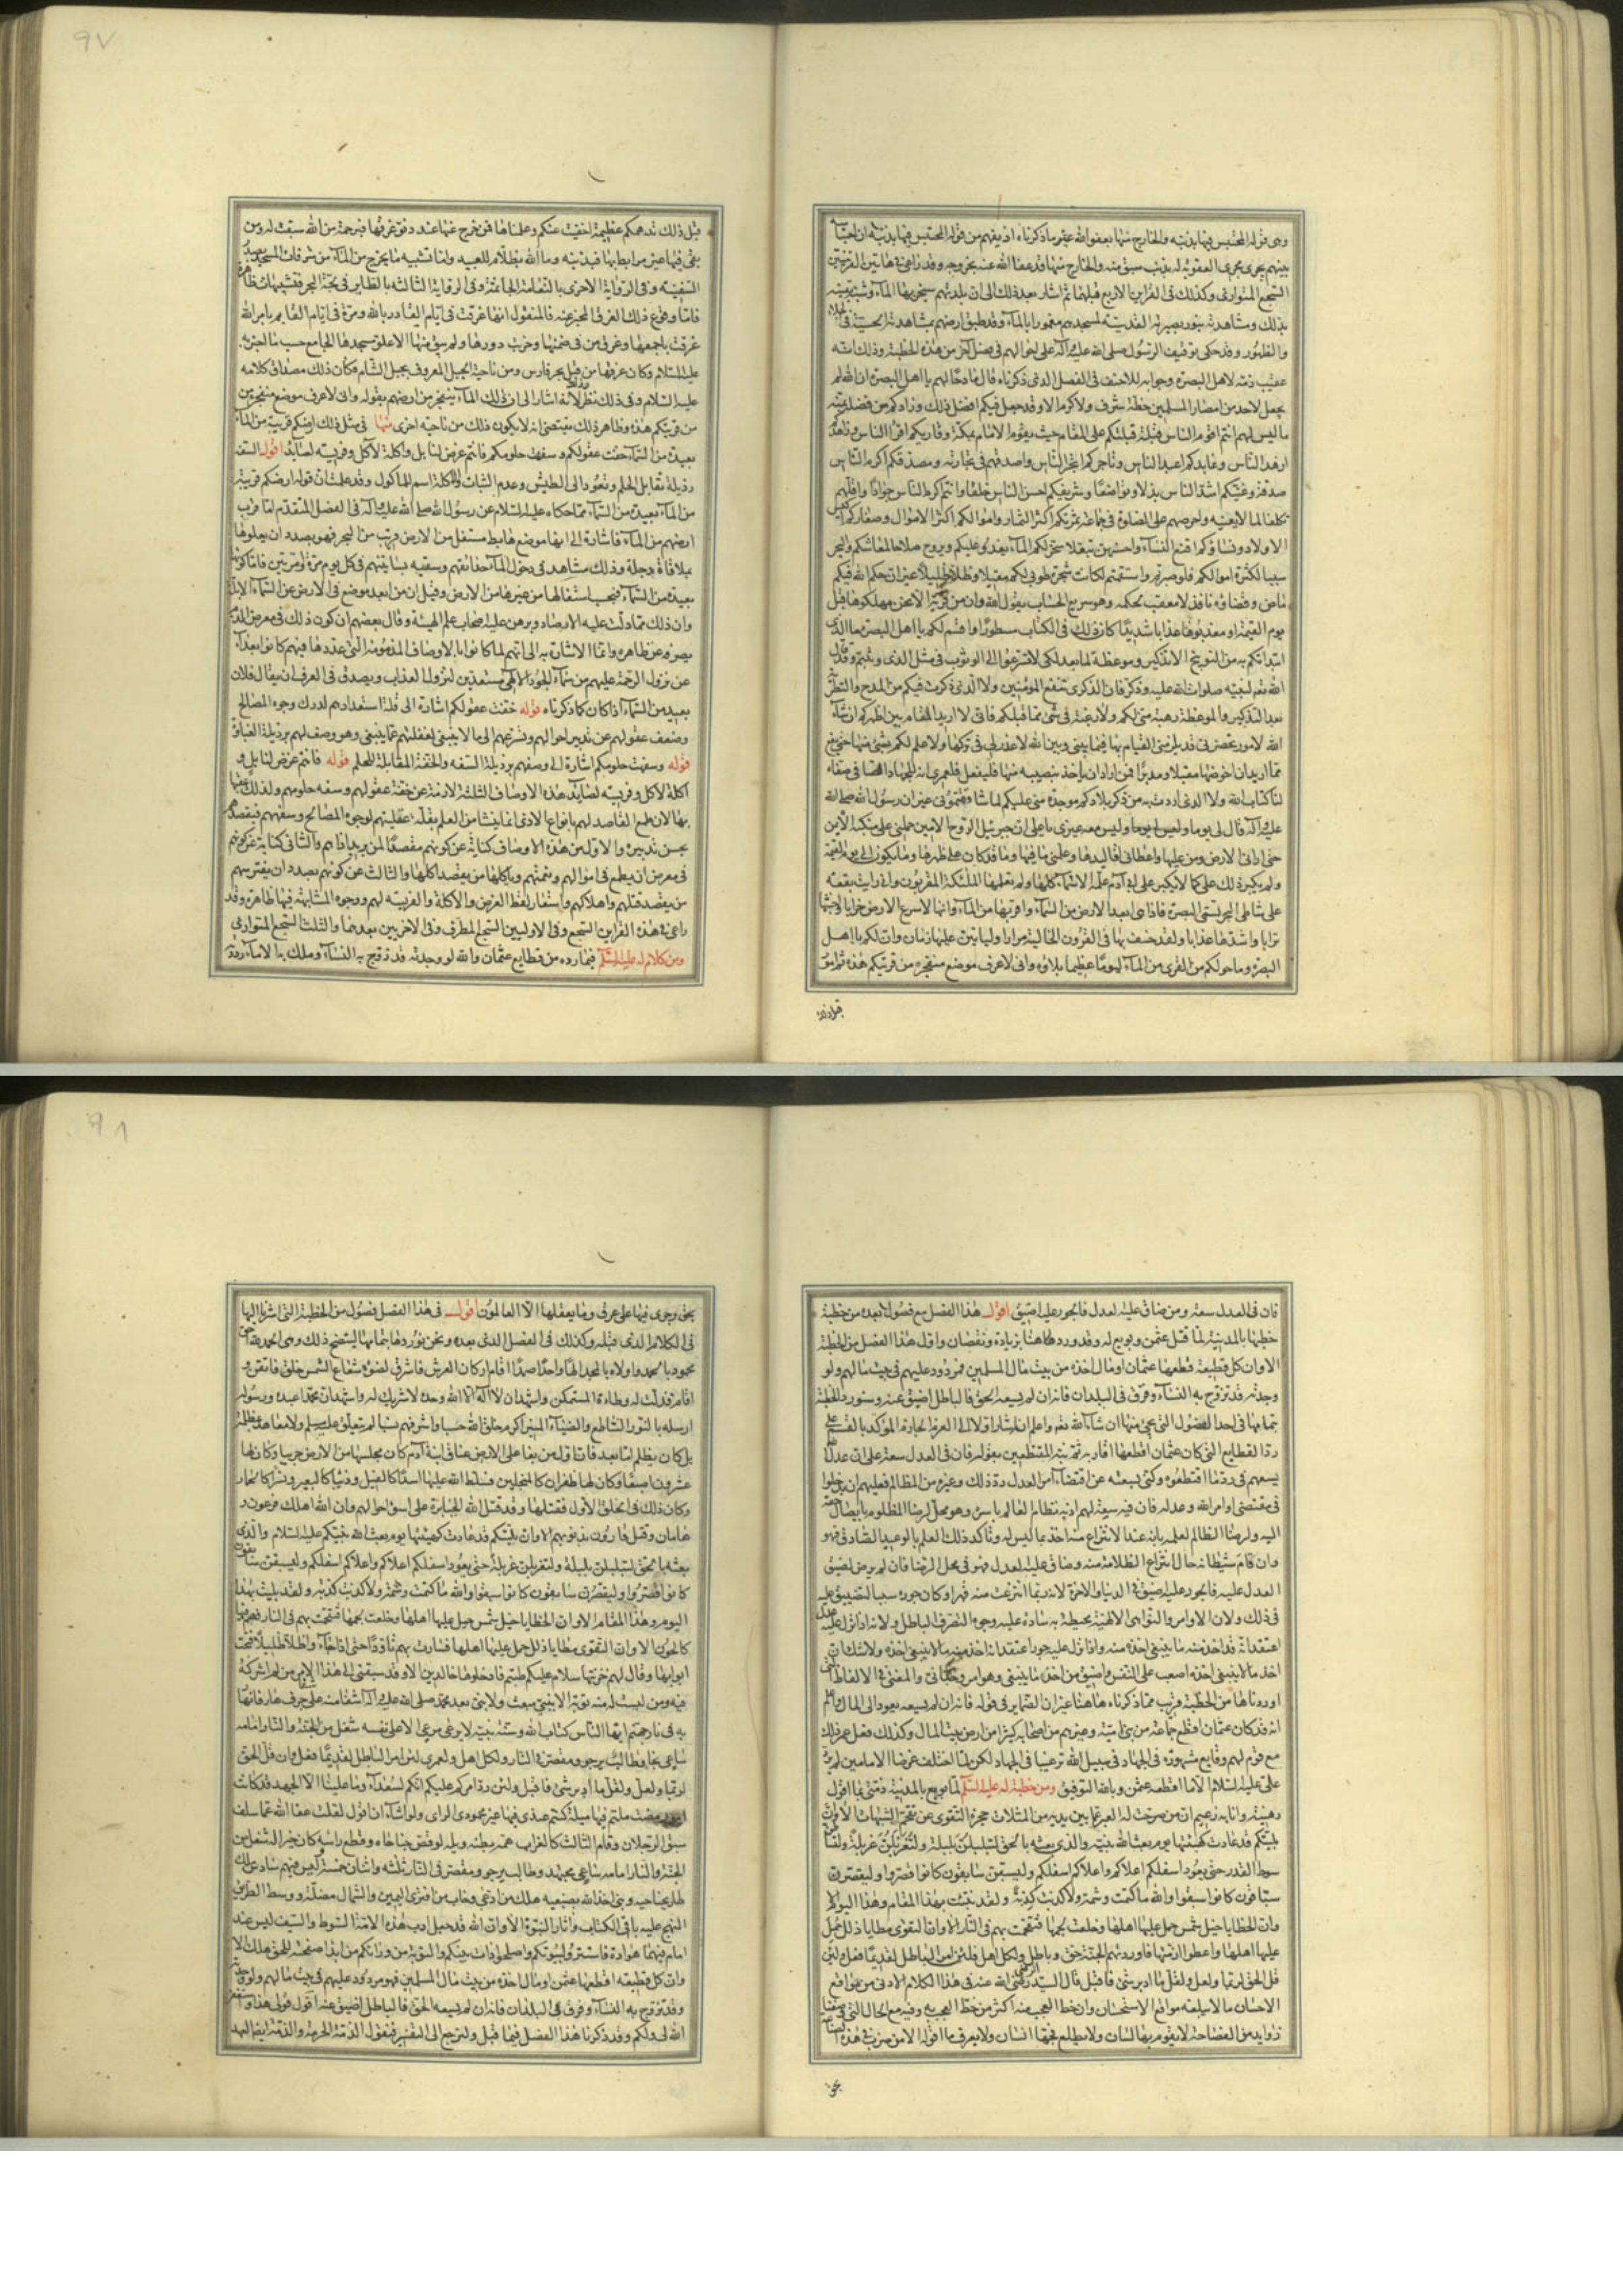 ٩٧
وهى قوله المحتبس فيها بذنبه والخارج منها بعفو الله عقيب ما ذكرناه اذ يفهم من قوله المحتبس فيها بذنبه ان احتباسه
بينهم يجرى مجرى العقوبة له بذنب سبق منه والخارج منها قد عفا الله عنه بخروجه وقد راعى فى هاتين القرينتين
السجع المتوازى وكذلك فى القراين الاربع قبلهما ثم اشار بعد ذلك الى ان بلدتهم سيخربها الماء
بذلك ومشاهدته بنور بصيرته القدسية لمسجدهم مغمورا بالماء وقد طبق ارضهم بمشاهدته الحسية فى
والظهور وقد حكى توقيف الرسول صلى الله عليه وآله على احوالهم فى فصل آخر من هذه الخطبة وذلك انه
عقيب ذمه لاهل البصرة وجوابه للاحنف فى الفصل الذى ذكرناه قال مادحا لهم يا اهل البصرة ان الله لم
يجعل لاحد من امصار المسلمين خطة شرف ولا كرم الا وقد جعل فيكم افضل ذلك وزادكم من فضله بمنه
ما ليس لهم انتم اقوم الناس قبلة قبلتكم على المقام حيث يقوم الامام بمكة وقاريكم اقرا الناس وزاهدكم
ازهد الناس وعابدكم اعبد الناس وتاجركم اتجر الناس واصدقهم فى تجارته ومصدقكم اكرم الناس
صدقة وغنيكم اشد الناس بذلا وتواضعا وشريفكم احسن الناس خلقا وانتم اكرم الناس جوارا واقلهم
تكلفا لما لا يعنيه واحرصهم على الصلوة فى جماعة ثمرتكم اكثر الثمار واموالكم اكثر الاموال وصغاركم اكيس
الاولاد ونساؤكم اقنع النساء واحسنهن تبعلا سخر لكم الماء يغدو عليكم ويروح صلاحا لمعاشكم والبحر
سببا لكثرة اموالكم فلو صبرتم واستقمتم لكانت شجرة طوبى لكم مقيلا وظلا ظليلا غير ان حكم الله فيكم
ماض وقضاؤه نافذ لا معقب لحكمه وهو سريع الحساب يقول الله وان من قرية الا نحن مهلكوها قبل
يوم القيمة او معذبوها عذابا شديدا كان ذلك فى الكتاب مسطورا واقسم لكم يا اهل البصرة ما الذى
ابتدأتكم به من التوبيخ الا تذكير وموعظة لما بعد لكى لا تسرعوا الى الوثوب فى مثل الذى وثبتم وقد قال
الله تعم لنبيه صلوات الله عليه وذكر فان الذكرى تنفع المومنين ولا الذى ذكرت فيكم من المدح والتطرية
بعد التذكير والموعظة رهبة منى لكم ولا رغبة فى شئ مما قبلكم فانى لا اريد المقام بين اظهركم ان شاء
الله لامور تحضرنى قد يلزمنى القيام بها فيما بينى وبين الله لا عذر لى فى تركها ولا علم لكم بشئ منها حتى يقع
مما اريد ان اخوضها مقبلا ومدبرا فمن اراد ان ياخذ بنصيبه منها فليفعل فلعمرى انه للجهاد
لنا كتاب الله ولا الذى اردت به من ذكر بلادكم موجدة منى عليكم لما شاققتمونى غير ان رسول الله صلى الله
عليه وآله قال لى يوما وليس معه غيرى يا على ان جبرئيل الروح الامين حملنى على منكبه الايمن
حتى ارانى الارض ومن عليها واعطانى اقاليدها وعلمنى ما فيها وما قد كان على ظهرها وما يكون الى يوم القيمة
ولم يكبر ذلك على كما لا يكبر على ابى آدم علمه الاسماء كلها ولم يعلمها الملئكة المقربون وانى رايت بقعة
على شاطى البحر تسمى البصرة فاذا هى ابعد الارض من السماء واقربها من الماء وانها لاسرع الارض خرابا واخبثها
ترابا واشدها عذابا ولقد خسف بها فى القرون الخالية مرارا ولياتين عليها زمان وان لكم يا اهل
البصرة وما حولكم من القرى من الماء ليوما عظيما بلاؤه وانى لاعرف موضع منفجره من قريتكم هذه ثم امور
قبل ذلك
قبل ذلك تدهمكم عظيمة اخفيت عنكم وعلمناها فمن خرج عنها عند دنو غرقها فبرحمة من الله سبقت له ومن
بقى فيها غير مرابط بها فبذنبه وما الله بظلام للعبيد واما تشبيه ما يخرج من الماء من شرفات المسجد بصدر
السفينة وفى الرواية الاخرى بالنعامة الجاثمة وفى الرواية الثالثة بالطاير فى لجة البحر فتشبيهات ظاهرة
فاما وقوع ذلك الغرق المخبر عنه فالمنقول انها غرقت فى ايام القادر بالله ومرة فى ايام القايم بامر الله
غرقت باجمعها وغرق من فى ضمنها وخربت دورها ولم يبق منها الا علو مسجدها الجامع حسب ما اخبر به
عليه السلام وكان غرقها من قبل بحر فارس ومن ناحية الجبل المعروف بجبل الشام فكان ذلك مصداق كلامه
عليه السلام وفى ذلك نظر لانه اشار الى ان ذلك الماء يتفجر من ارضهم بقوله وانى لاعرف موضع منفجره من
من قريتكم هذه وظاهر ذلك يقتضى انه لا يكون ذلك من ناحية اخرى منها فى مثل ذلك ارضكم قريبة من الماء
بعيدة من السماء خفت عقولكم وسفهت حلومكم فانتم غرض لنابل واكلة لآكل وفريسة لصايد اقول السفه
رذيلة تقابل الحلم وتعود الى الطيش وعدم الثبات والاكلة اسم للماكول وقد علمت ان قوله ارضكم قريبة
من الماء بعيدة من السماء مما حكاه عليه السلام عن رسول الله صلى الله عليه وآله فى الفصل المتقدم اما قرب
ارضهم من الماء فاشارة الى انها موضع هابط مستفل من الارض قريب من البحر فهو بصدد ان يعلوها
بملاقاة دجلة وذلك مشاهد فى دخول الماء حدائقهم وسقيه بساتينهم فى كل يوم مرة او مرتين فاما كونها
بعيدة من السماء فبحسب استفالها من غيرها من الارض وقيل ان من ابعد موضع فى الارض عن السماء الابلة
وان ذلك مما دلت عليه الارصاد وبرهن عليه اصحاب علم الهيئة وقال بعضهم ان كون ذلك فى معرض الذم
يصرفه عن ظاهره وانما الاشارة به الى انهم لما كانوا بالاوصاف المذمومة التى عددها فيهم كانوا بعداء
عن نزول الرحمة عليهم من سماء الجود الالهى مستعدين لنزول العذاب ويصدق فى العرف ان يقال فلان
بعيد من السماء اذا كان كما ذكرناه قوله خفت عقولكم اشارة الى قلة استعدادهم لدرك وجوه المصالح
وضعف عقولهم عن تدبير احوالهم وتسرعهم الى ما لا ينبغى لغفلتهم عما ينبغى وهو وصف لهم برذيلة الغباوة
قوله وسفهت حلومكم اشارة الى وصفهم برذيلة السفه والخفة المقابلة للحلم قوله فانتم غرض لنابل و
اكلة لآكل وفريسة لصايد هذه الاوصاف الثلثة لازمة عن خفة عقولهم وسفه حلومهم ولذلك عقبها
بها لان طمع القاصد لهم بانواع الاذى انما ينشا من العلم بقلة عقليتهم لوجوه المصالح وسفههم فيقصدهم
بحسن تدبيره والاول من هذه الاوصاف كناية عن كونهم مقصدا لمن يريد اذاهم والثانى كناية عن كونهم
فى معرض ان يطمع فى اموالهم ونعمتهم وياكلها من يقصد اكلها والثالث عن كونهم بصدد ان يفترسهم
من يقصد قتلهم واهلاكهم واستعار لفظ الغرض والاكلة والفريسة لهم ووجوه المشابهة فيها ظاهرة وقد
راعى فى هذه القراين السجع وفى الاوليين السجع المطرف وفى الاخريين بعدهما والثلث السجع المتوازى
ومن كلام له عليه السلم فيما رده من قطايع عثمان والله لو وجدته قد تزوج به النساء وملك به الاماء رددته
٩٨
فان فى العدل سعة ومن ضاق عليه العدل فالجور عليه اضيق اقول هذا الفصل مع فصول بعده من خطبة
خطبها بالمدينة لما قتل عثمن وبويع له وقد وردها هنا بزيادة ونقصان واول هذا الفصل من الخطبة
الا وان كل قطيعة قطعها عثمان او مال اخذه من بيت مال المسلمين فمردود عليهم فى بيت مالهم ولو
وجدته قد تزوج به النساء وفرق فى البلدان فانه ان لم يسعه الحق فالباطل اضيق عنه وسنورد الخطبة
بتمامها فى احد الفصول التى تجئ منها ان شاء الله تعم واعلم انه اشار اولا الى العزم الجازم الموكد بالقسم على
رد القطايع التى كان عثمان اقطعها اقاربه ثم نبه المقتطعين بقوله فان فى العدل سعة على ان عدله
يسعهم فى رد ما اقتطعوه وكنى بسعته عن اقتضاء امر العدل رد ذلك وغيره من المظالم فعليهم ان يدخلوا
فى مقتضى اوامر الله وعدله فان فيه سعة لهم اذ به نظام العالم باسره وهو محل لرضا المظلوم بايصال حقه
اليه ولرضا الظالم لعلمه بانه عند الانتزاع منه اخذ ما ليس له وتاكد ذلك العلم بالوعيد الصادق فهو
وان قام شيطانه حال انتزاع الظلامة منه وضاق عليه العدل فهو فى محل الرضا فان لم يرض لضيق
العدل عليه فالجور عليه اضيق فى الدنيا والاخرة لانه ربما انتزعت منه قهرا وكان جوره سببا للتضييق عليه
فى ذلك ولان الاوامر والنواهى الالهية محيطة به سادة عليه وجوه التصرف الباطل ولانه اذا نزل عليه عدل
اعتقد انه قد اخذ منه ما ينبغى اخذه منه واذا نزل عليه جور اعتقد انه اخذ منه ما لا ينبغى اخذه ولا شك ان
اخذ ما لا ينبغى اخذه اصعب على النفس واضيق من اخذ ما ينبغى وهو امر وجدانى والمعنى فى الالفاظ التى
اوردناها من الخطبة قريب مما ذكرناه هاهنا غير ان الضماير فى قوله فانه ان لم يسعه يعود الى المال واعلم
انه قد كان عثمان اقطع جماعة من بنى امية وغيرهم من اصحابه كثيرا من ارض بيت المال وكذلك فعل عمر ذلك
مع قوم لهم وقايع مشهورة فى الجهاد فى سبيل الله ترغيبا فى الجهاد لكن لما اختلف غرضا الامامين لم يرد
على عليه السلام الا ما اقطعه عثمن وبالله التوفيق ومن خطبة له عليه السلم لما بويع بالمدينة ذمتى بما اقول
رهينة وانا به زعيم ان من صرحت له العبر عما بين يديه من المثلات حجزه التقوى عن تقحم الشبهات الا وان
بليتكم قد عادت كهيئتها يوم بعث الله نبيه والذى بعثه بالحق لتبلبلن بلبلة ولتغربلن غربلة ولتساطن
سوط القدر حتى يعود اسفلكم اعلاكم واعلاكم اسفلكم وليسبقن سابقون كانوا قصروا وليقصرن
سباقون كانوا سبقوا والله ما كتمت وشمة ولا كذبت كذبة ولقد نبئت بهذا المقام وهذا اليوم الا
وان الخطايا خيل شمس حمل عليها اهلها وخلعت لجمها فتقحمت بهم فى النار الا وان التقوى مطايا ذلل حمل
عليها اهلها واعطوا ازمتها فاوردتهم الجنة حق وباطل ولكل اهل فلئن امر الباطل لقديما فعل ولئن
قل الحق لربما ولعل ولقل ما ادبر شئ فاقبل قال السيد رضى الله عنه فى هذا الكلام الادنى من مواقع
الاحسان ما لا يبلغه مواقع الاستحسان وان حظ العجب منه اكثر من حظ العجب به وفيه مع الحال التى وصفنا
زوايد من الفصاحة لا يقوم بها لسان ولا يطلع فجها انسان ولا يعرف ما اقوله الا من ضرب فى هذه الصناعة
بحق
بحق وجرى فيها على عرق وما يعقلها الا العالمون اقول فى هذا الفصل فصول من الخطبة التى اشرنا اليها
فى الكلام الذى قبله وكذلك فى الفصل الذى بعده ونحن نوردها بتمامها ليتضح ذلك وهى الحمد لله احق
محمود بالحمد واولاه بالمجد الها واحدا صمدا اقام اركان العرش فاشرق لضوئه شعاع الشمس خلق فاتقن و
اقام فذلت له وطاة المستمكن واشهد ان لا اله الا الله وحده لا شريك له واشهد ان محمدا عبده ورسوله
ارسله بالنور الساطع والضياء المنير اكرم خلق الله حسبا واشرفهم نسبا لم يتعلق عليه مسلم ولا معاهد بمظلمة
بل كان يظلم اما بعد فان اول من بغى على الارض عناق ابنة آدم كان مجلسها من الارض جريبا وكان لها
عشرون اصبعا وكان لها ظفران كالمنجلين فسلط الله عليها اسدا كالفيل وذئبا كالبعير ونسرا كالحمار
وكان ذلك فى الخلق الاول فقتلها وقد قتل الله الجبابرة على اسوء احوالهم وان الله اهلك فرعون و
هامان وقتل قارون بذنوبهم الا وان بليتكم قد عادت كهيئتها يوم بعث الله نبيكم عليه السلام والذى
بعثه بالحق لتبلبلن بلبلة ولتغربلن غربلة حتى يعود اسفلكم اعلاكم واعلاكم اسفلكم وليسبقن سابقون
كانوا قصروا وليقصرن سابقون كانوا سبقوا والله ما كتمت وشمة ولا كذبت كذبة ولقد نبئت بهذا
اليوم وهذا المقام الا وان الخطايا خيل شمس حمل عليها اهلها وخلعت لجمها فتقحمت بهم فى النار فهم فيها
كالحون الا وان التقوى مطايا ذلل حمل عليها اهلها فسارت بهم تاودا حتى اذا جاءوا ظلا ظليلا فتحت
ابوابها وقال لهم خزنتها سلام عليكم طبتم فادخلوها خالدين الا وقد سبقنى الى هذا الامر من لم اشركه
فيه ومن ليست له منه توبة الا بنبى مبعوث ولا نبى بعد محمد صلى الله عليه وآله اشفا منه على شفا جرف هار فانهار
به فى نار جهنم ايها الناس كتاب الله وسنة نبيه لا يرعى مرعى الا على نفسه شغل من الجنة والنار امامه
ساعى نجا وطالب يرجو ومقصر فى النار ولكل اهل ولعمرى لئن امر الباطل لقديما فعل وان قل الحق
لربما ولعل ولقل ما ادبر شئ فاقبل ولئن رد امركم عليكم انكم لسعداء وما علينا الا الجهد قد كانت
امور مضت ملتم فيها ميلة كنتم عندى فيها غير محمودى الراى ولو اشاء ان اقول لقلت عفا الله عما سلف
سبق الرجلان وقام الثالث كالغراب همه بطنه ويله لو قص جناحاه وقطع راسه كان خيرا له شغل من
الجنة والنار امامه ساعى مجتهد وطالب يرجو ومقصر فى النار ثلثة واثنان خمسة وليس فيهم سادس ملك
طار بجناحيه ونبى اخذ الله بضبعيه هلك من ادعى وخاب من افترى اليمين والشمال مضلة ووسط الطريق
المنهج عليه باقى الكتاب واثار النبوة الا وان الله قد جعل ادب هذه الامة السوط والسيف ليس عند
امام فيهما هوادة فاستتروا ببيوتكم واصلحوا ذات بينكم والتوبة من ورائكم من ابدا صفحته للحق هلك الا
وان كل قطيعة اقطعها عثمن او مال اخذه من بيت مال المسلمين فهو مردود عليهم فى بيت مالهم ولو وجدته
وقد تزوج به النساء وفرق فى البلدان فانه ان لم يسعه الحق فالباطل اضيق عنه اقول قولى هذا واستغفر
الله لى ولكم وقد ذكرنا هذا الفصل فيما قبل ولنرجع الى التفسير فنقول الذمة الحرمة والذمة ايضا العهد